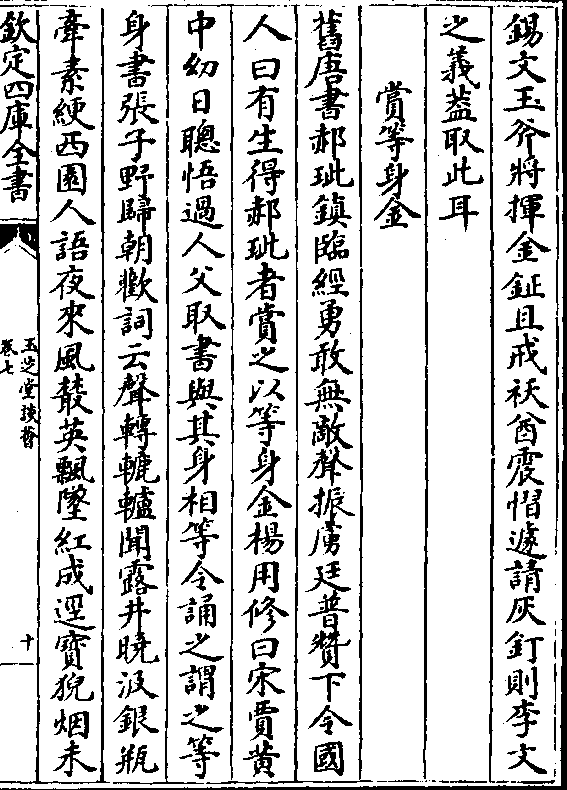 錫文玉斧將揮金鉦且戒祆酋震慴遽請灰釘則李文
之義葢取此耳
賞等身金
舊唐書郝玼鎮臨經勇敢無敵聲振虜廷普贊下令國
人曰有生得郝玼者賞之以等身金楊用修曰宋賈黄
中幼日聰悟過人父取書與其身相等令誦之謂之等
身書張子野歸朝歡詞云聲轉轆轤聞露井曉汲銀瓶
牽素綆西園人語夜來風叢英飄墜紅成逕寳猊烟未
欽定四庫全書
玉芝堂談薈
卷七
十